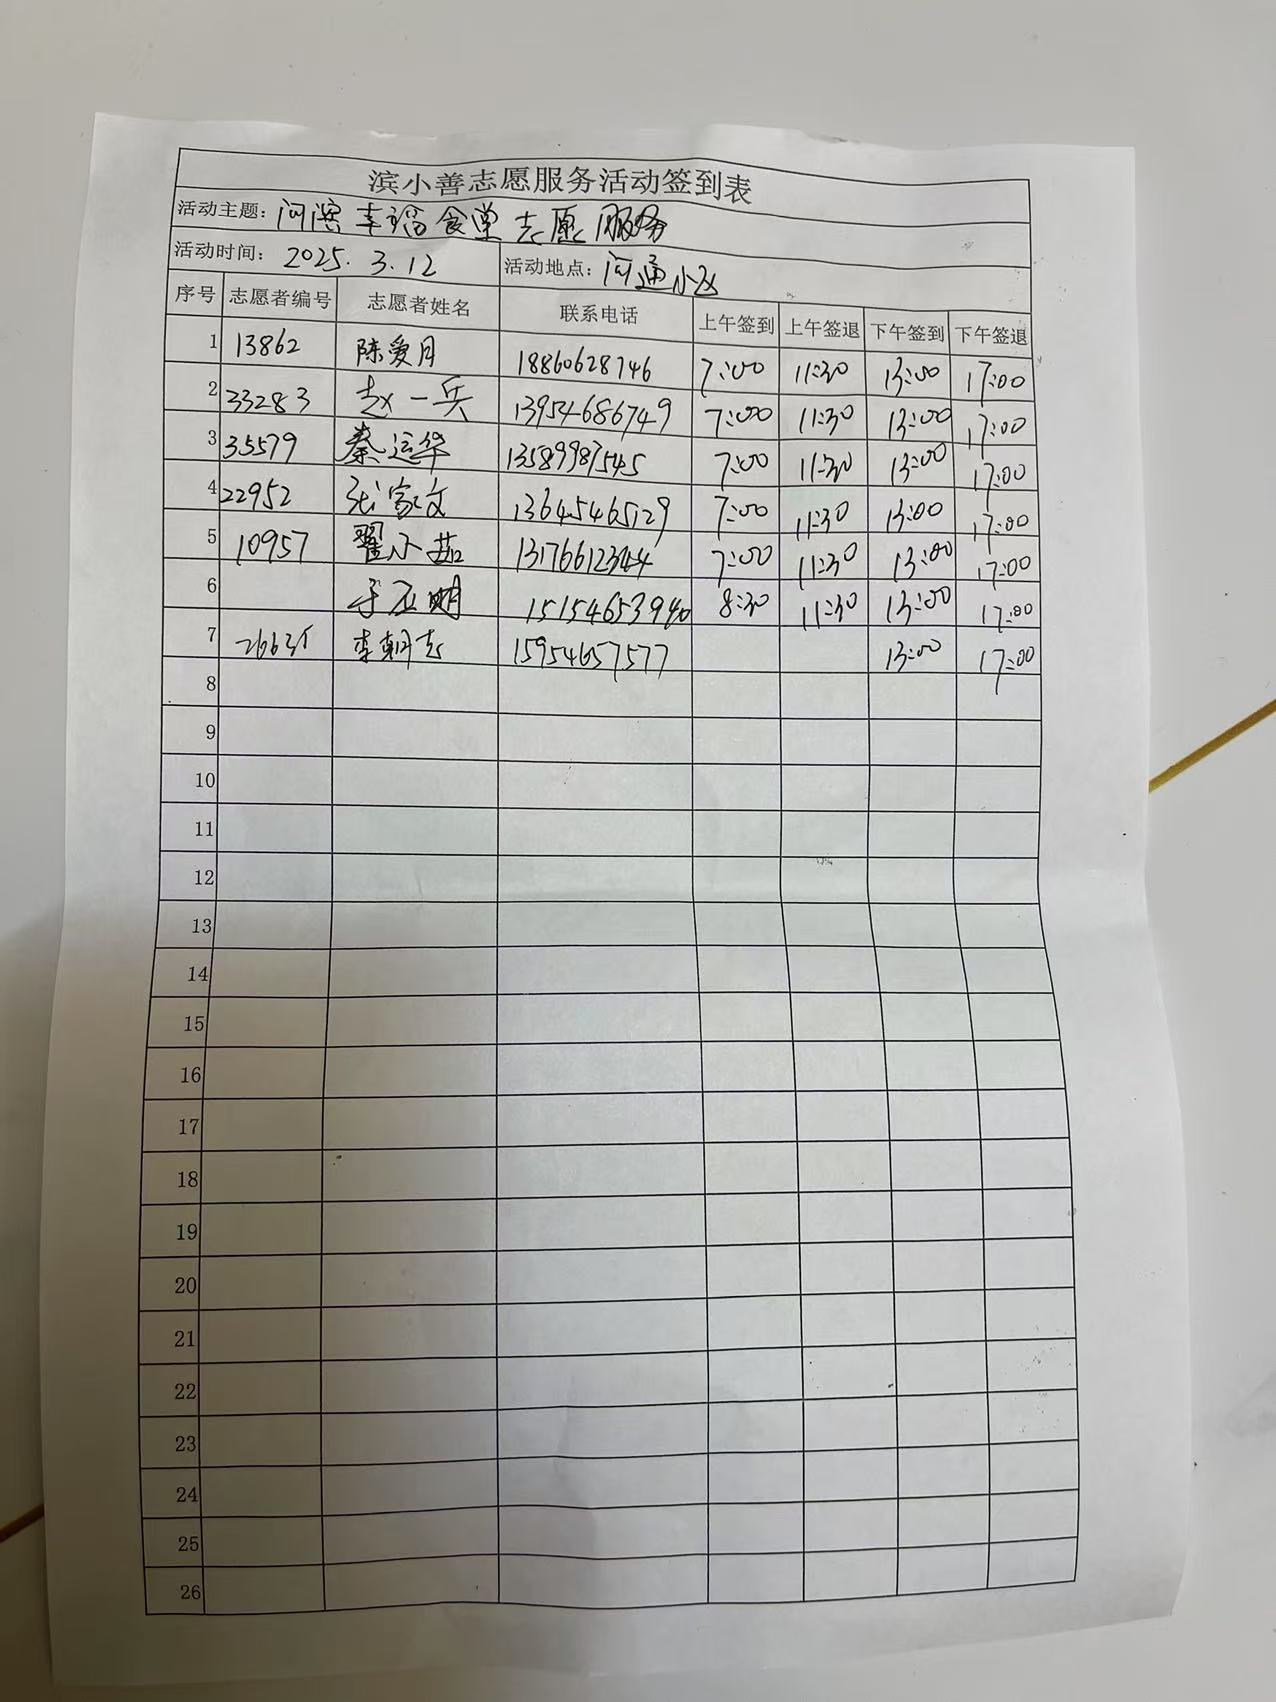 滨小善志愿服务活动签到表
活动主题: 河滨幸福食堂志愿服务
活动时间: 2025.3.12 活动地点: 河通小区
序号 志愿者编号 志愿者姓名 联系电话 上午签到 上午签退 下午签到 下午签退
1 13862 陈爱月 18860628746 7:00 11:30 13:00 17:00
2 33283 赵一兵 13954686749 7:00 11:30 13:00 17:00
3 35579 秦运华 13589987545 7:00 11:30 13:00 17:00
4 22952 张家文 13645465129 7:00 11:30 13:00 17:00
5 10957 翟小茹 13176612344 7:00 11:30 13:00 17:00
6 于 明 15154653940 8:30 11:30 13:00 17:00
7 26635 李朝志 15954657577 13:00 17:00
8
9
10
11
12
13
14
15
16
17
18
19
20
21
22
23
24
25
26